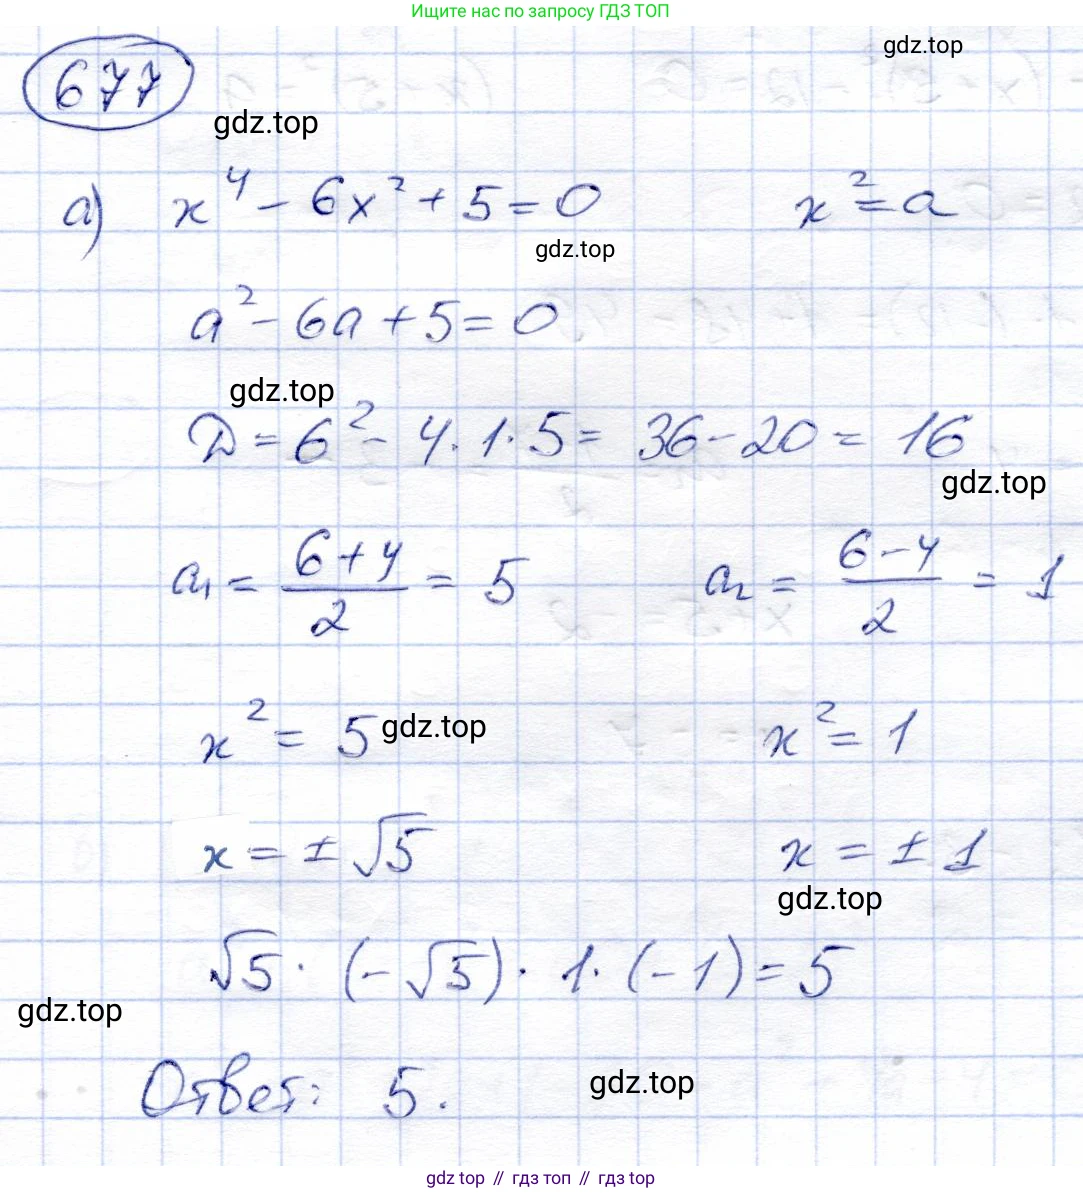 Ищите нас по запросу ГДЗ ТОП
gdz.top
677
gdz.top
а) x⁴ - 6x² + 5 = 0 x² = a
gdz.top
a² - 6a + 5 = 0
gdz.top
D = 6² - 4 · 1 · 5 = 36 - 20 = 16
gdz.top
a₁ = (6 + 4)/2 = 5 a₂ = (6 - 4)/2 = 1
x² = 5 gdz.top x² = 1
x = ± √5 x = ± 1
gdz.top
√5 · (-√5) · 1 · (-1) = 5
gdz.top
Ответ: 5.
gdz.top
gdz top // гдз топ // gdz top